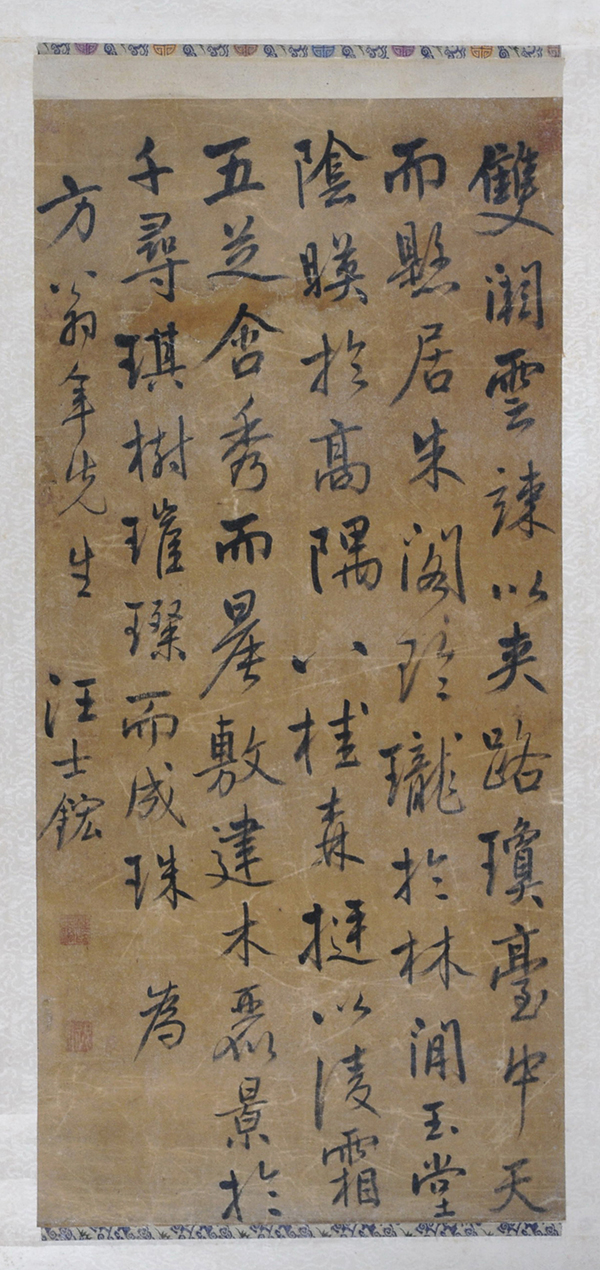 雙闕雲竦以夾路瓊臺中天
而懸居朱閣玲瓏於林閒玉堂
陰暎於高隅八桂森挺以淩霜
五芝含秀而晨敷建木景於
千尋琪樹璀璨而成珠 為
方翁年先生 汪士鋐